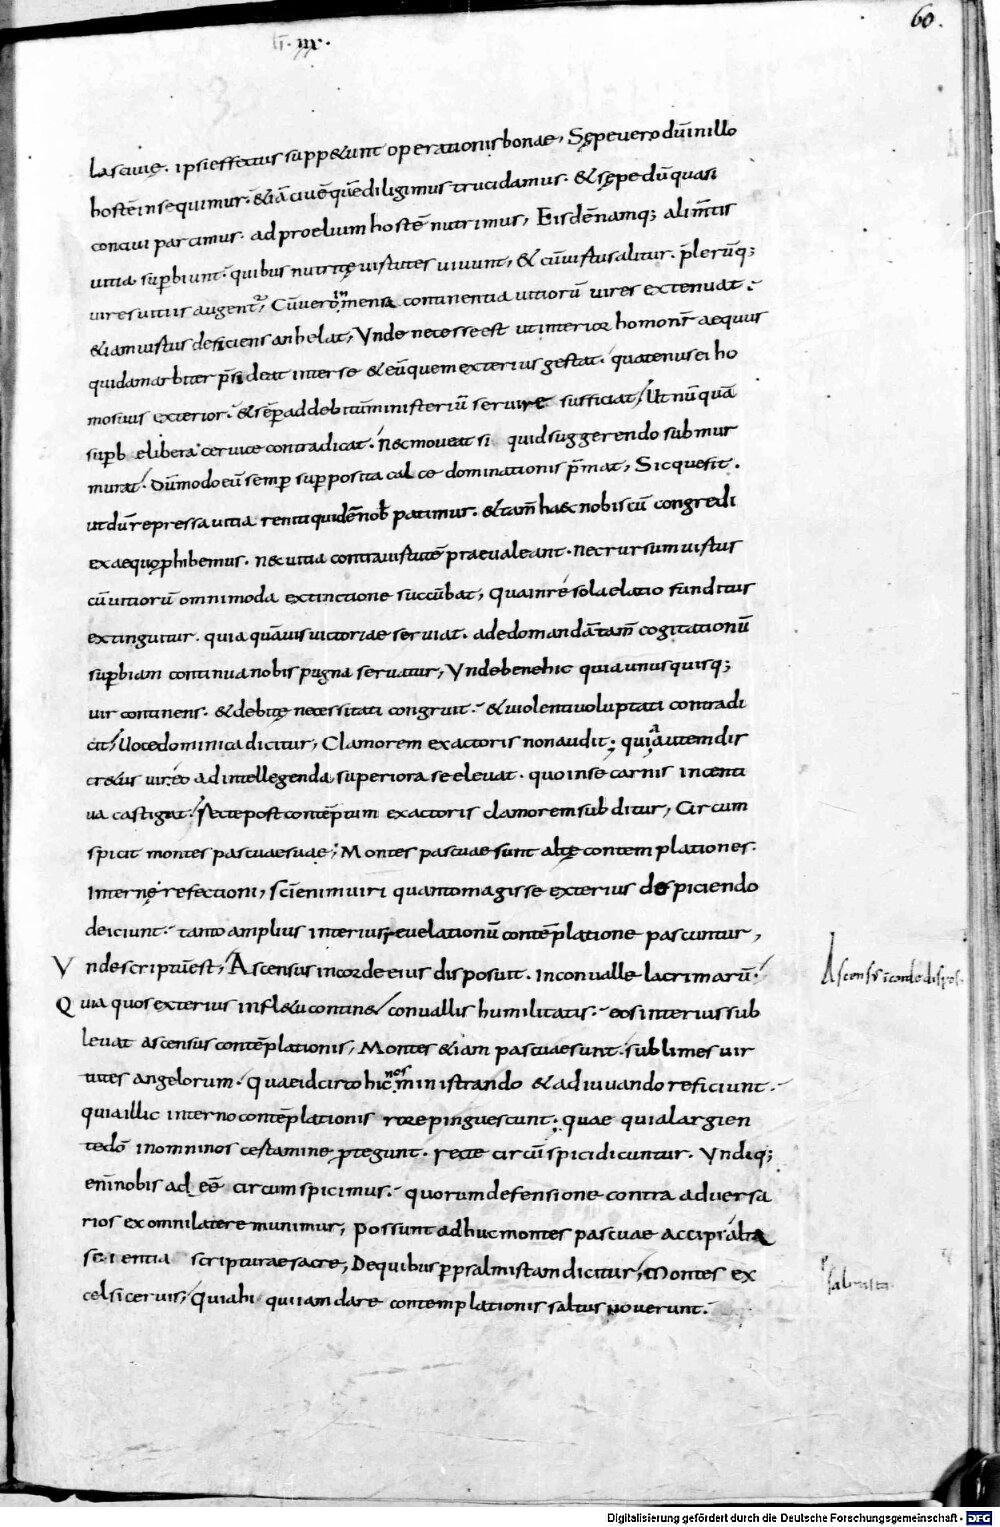 60.
lasciuię. ipsi effectus suppetunt operationis bonae, Sępe uero dū in illo
hostē insequimur. &iā ciuē quē diligimus trucidamus. & sępe dū quasi
conciui parcimus. ad proelium hostē nutrimus, Eisdē namq; alim̄tis
uitia supbiunt. quibus nutritę uirtutes uiuunt, & cū uirtus alitur. plerūq;
uires uitiis augent̄, Cū uero in mensa continentia uitiorū uires extenuat.
& iam uirtus deficiens anhelat, Vnde necesse est ut interior homo nr̄ aequus
quidam arbiter p̄sideat inter se & eū quem exterius gestat. quatenus ei ho
mo suus exterior. & sēp ad debitū ministeriū seruire sufficiat, Ut nūquā
supb e libera ceruice contradicat. Nec moueat si quid suggerendo submur
murat. Dūmodo eū semp supposita calce dominationis p̄mat, Sicque sit.
ut dū repressa uitia reniti quidē nob̄ patimur. & tam̄ haec nobiscū congredi
ex aequo phibemus. nec uitia contra uirtutē praeualeant. Nec rursum uirtus
cū uitiorū omnimoda extinctione succūbat, Qua in re sola elatio funditus
extinguitur. quia quāuis uictoriae seruiat. ad edomandā tam̄ cogitationū
supbiam continua nobis pugna seruatur, Vnde bene hic quia unusquisq;
uir continens. & debitę necessitati congruit. & uiolenti uoluptati contradi
cit, Uoce dominica dicitur, Clamorem exactoris non audit; quia autem dis
cretus uir eo ad intellegenda superiora se eleuat. quo in se carnis incenti
ua castigat. Recte post contēptum exactoris clamorem subditur, Circum
spicit montes pascuae suae; Montes pascuae sunt altę contemplationes.
Internę refectioni, Sci enim uiri quanto magis se exterius despiciendo
deiciunt. tanto amplius interius reuelationū contēplatione pascuntur,
Vnde scriptū est, Ascensus in corde eius disposuit. In conualle lacrimarū.
Ascensꝰ i corde dispos.
Quia quos exterius in fletu continet conuallis humilitatis. eos interius sub
leuat ascensus contēplationis, Montes etiam pascuae sunt. sublimes uir
tutes angelorum. Quae idcirco hic nos ministrando & adiuuando reficiunt.
quia illic interno contēplationis rore pinguescunt; quae quia largien
te dō in omni nos certamine ptegunt. recte circūspici dicuntur. Vndiq;
enī nobis adeē circumspicimus. quorum defensione contra aduersa
rios ex omni latere munimur, Possunt adhuc montes pascuae accipi alta
scientia scripturae sacre, De quibus p psalmistam dicitur, Montes ex
celsi ceruis, Quia hi qui iam dare contemplationis saltus nouerunt.
Digitalisierung gefördert durch die Deutsche Forschungsgemeinschaft - DFG